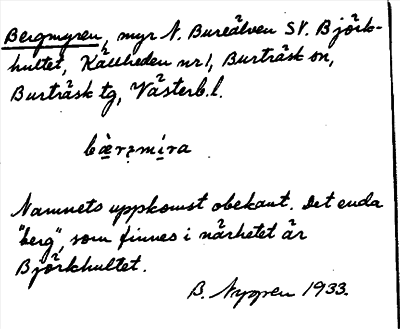 Bergmyren, myr N. Bureälven SV. Björk-
hultet, Källheden nr 1, Burträsk sn,
Burträsk tg, Västerb.l.
bæ̀rꝛmíra
Namnets uppkomst obekant. Det enda
"berg", som finnes i närhetet är
Björkhultet.
B. Nygren 1933.